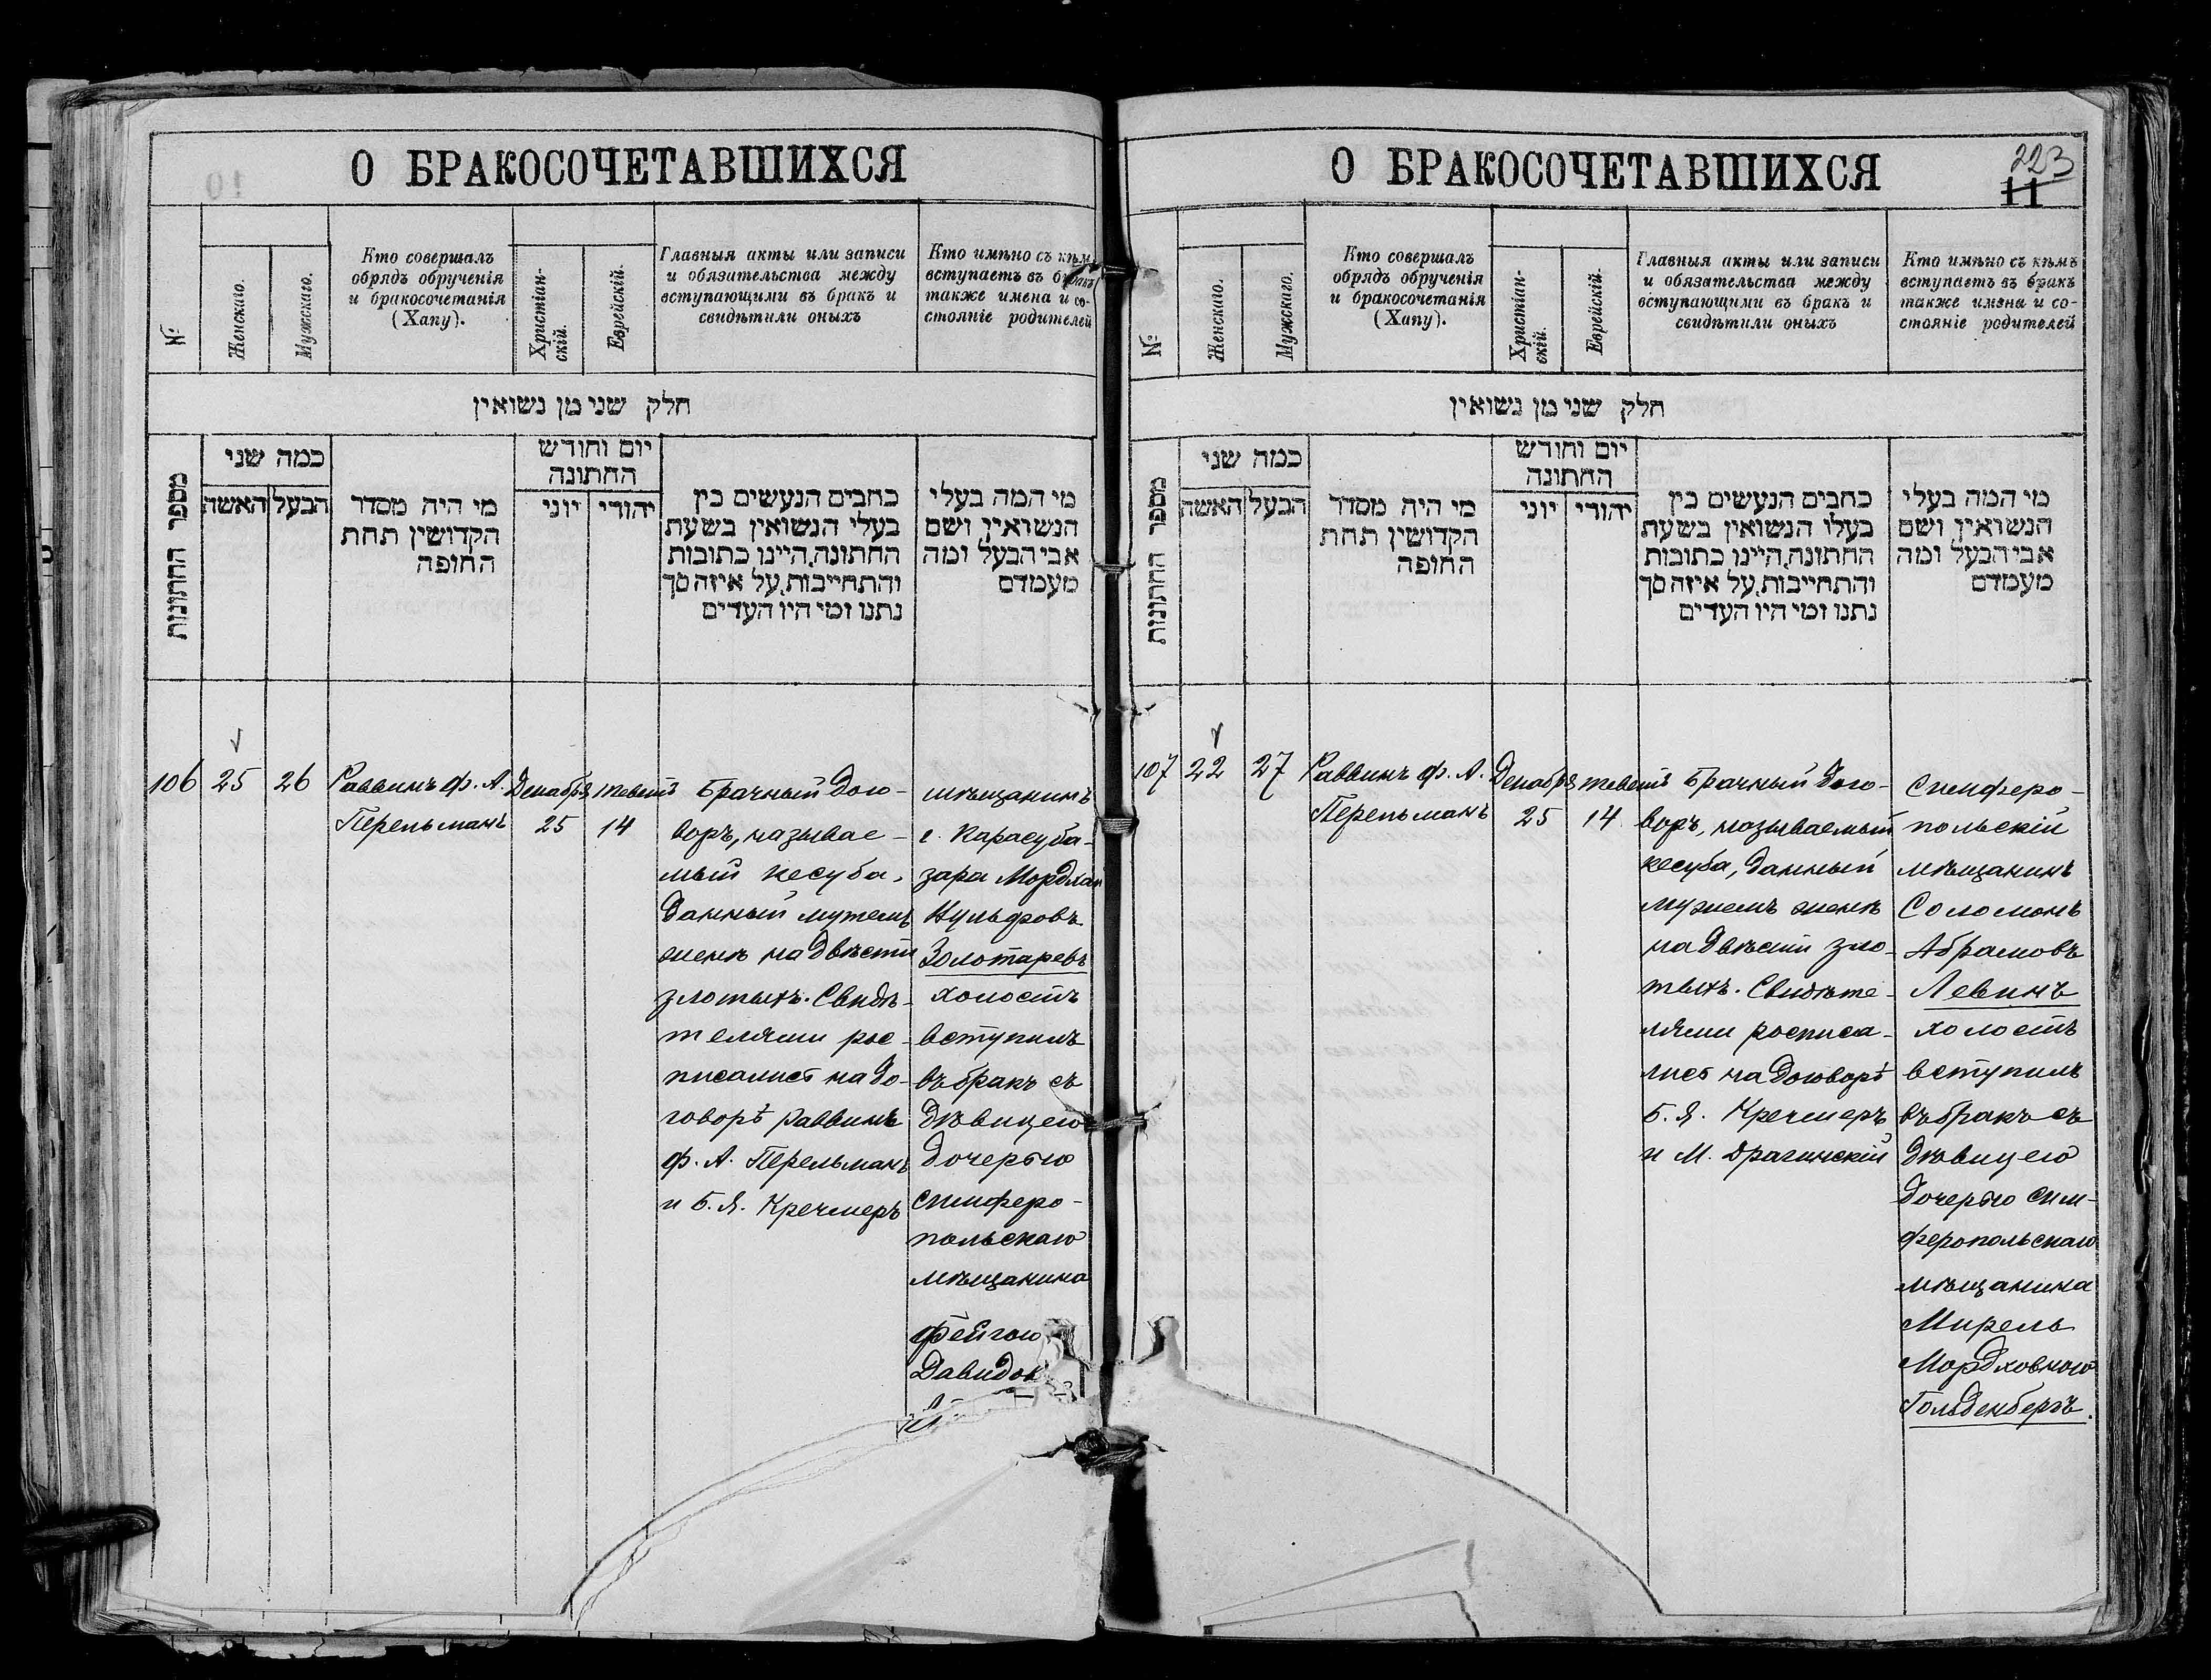 О БРАКОСОЧЕТАВШИХСЯ
№
Женскаго.
Мужскаго.
Кто совершалъ
обрядъ обрученія
и бракосочетанія
(Хапу).
Христіан-
скій.
Еврейскій.
Главныя акты или записи
и обязательства между
вступающими въ бракъ и
свидѣтили оныхъ
Кто имѣно съ кѣмъ
вступаетъ въ бракъ
также имена и со-
стояніе родителей
חלק שני מן נשואין
מספר החתונות
כמה שני
האשה
הבעל
מי היה מסדר
הקדושין תחת
החופה
יום וחודש
החתונה
יוני
יהודי
כתבים הנעשים בין
בעלי הנשואין בשעת
החתונה, היינו כתובות
והתחייבות, על איזה סך
נתנו ומי היו העדים
מי המה בעלי
הנשואין ושם
אבי הבעל ומה
מעמדם
106
25
26
Раввинъ Ф. А.
Перельманъ
Декабря
25
теветъ
14
Брачный дого-
воръ, называе-
мый кесуба,
данный мужемъ
женѣ на двѣсти
злотыхъ. Свидѣ-
телями рос-
писались на до-
говорѣ раввинъ
Ф. А. Перельманъ
и Б. Я. Кречмеръ
мѣщанинъ
г. Карасуба-
зара Мордхай
Нульфовъ
Золотаревъ
холостъ
вступилъ
въ бракъ съ
дѣвицею
дочерью
симферо-
польскаго
мѣщанина
Фейгою
О БРАКОСОЧЕТАВШИХСЯ
223
11
№
Женскаго.
Мужскаго.
Кто совершалъ
обрядъ обрученія
и бракосочетанія
(Хапу).
Христіан-
скій.
Еврейскій.
Главныя акты или записи
и обязательства между
вступающими въ бракъ и
свидѣтили оныхъ
Кто имѣно съ кѣмъ
вступаетъ въ бракъ
также имэна и со-
стояніе родителей
חלק שני מן נשואין
מספר החתונות
כמה שני
האשה
הבעל
מי היה מסדר
הקדושין תחת
החופה
יום וחודש
החתונה
יוני
יהודי
כתבים הנעשים בין
בעלי הנשואין בשעת
החתונה, היינו כתובות
והתחייבות, על איזה סך
נתנו ומי היו העדים
מי המה בעלי
הנשואין ושם
אבי הבעל ומה
מעמדם
107
22
27
Раввинъ Ф. А.
Перельманъ
Декабря
25
теветъ
14
Брачный дого-
воръ, называемый
кесуба, данный
мужемъ женѣ
на двѣсти зло-
тыхъ. Свидѣте-
лями росписа-
лись на договорѣ
Б. Я. Кречмеръ
и М. Драгинскій
Симферо-
польскій
мѣщанинъ
Соломонъ
Абрамовъ
Левинъ
холостъ
вступилъ
въ бракъ съ
дѣвицею
дочерью сим-
феропольскаго
мѣщанина
Мирель
Мордховною
Гольденбергъ.